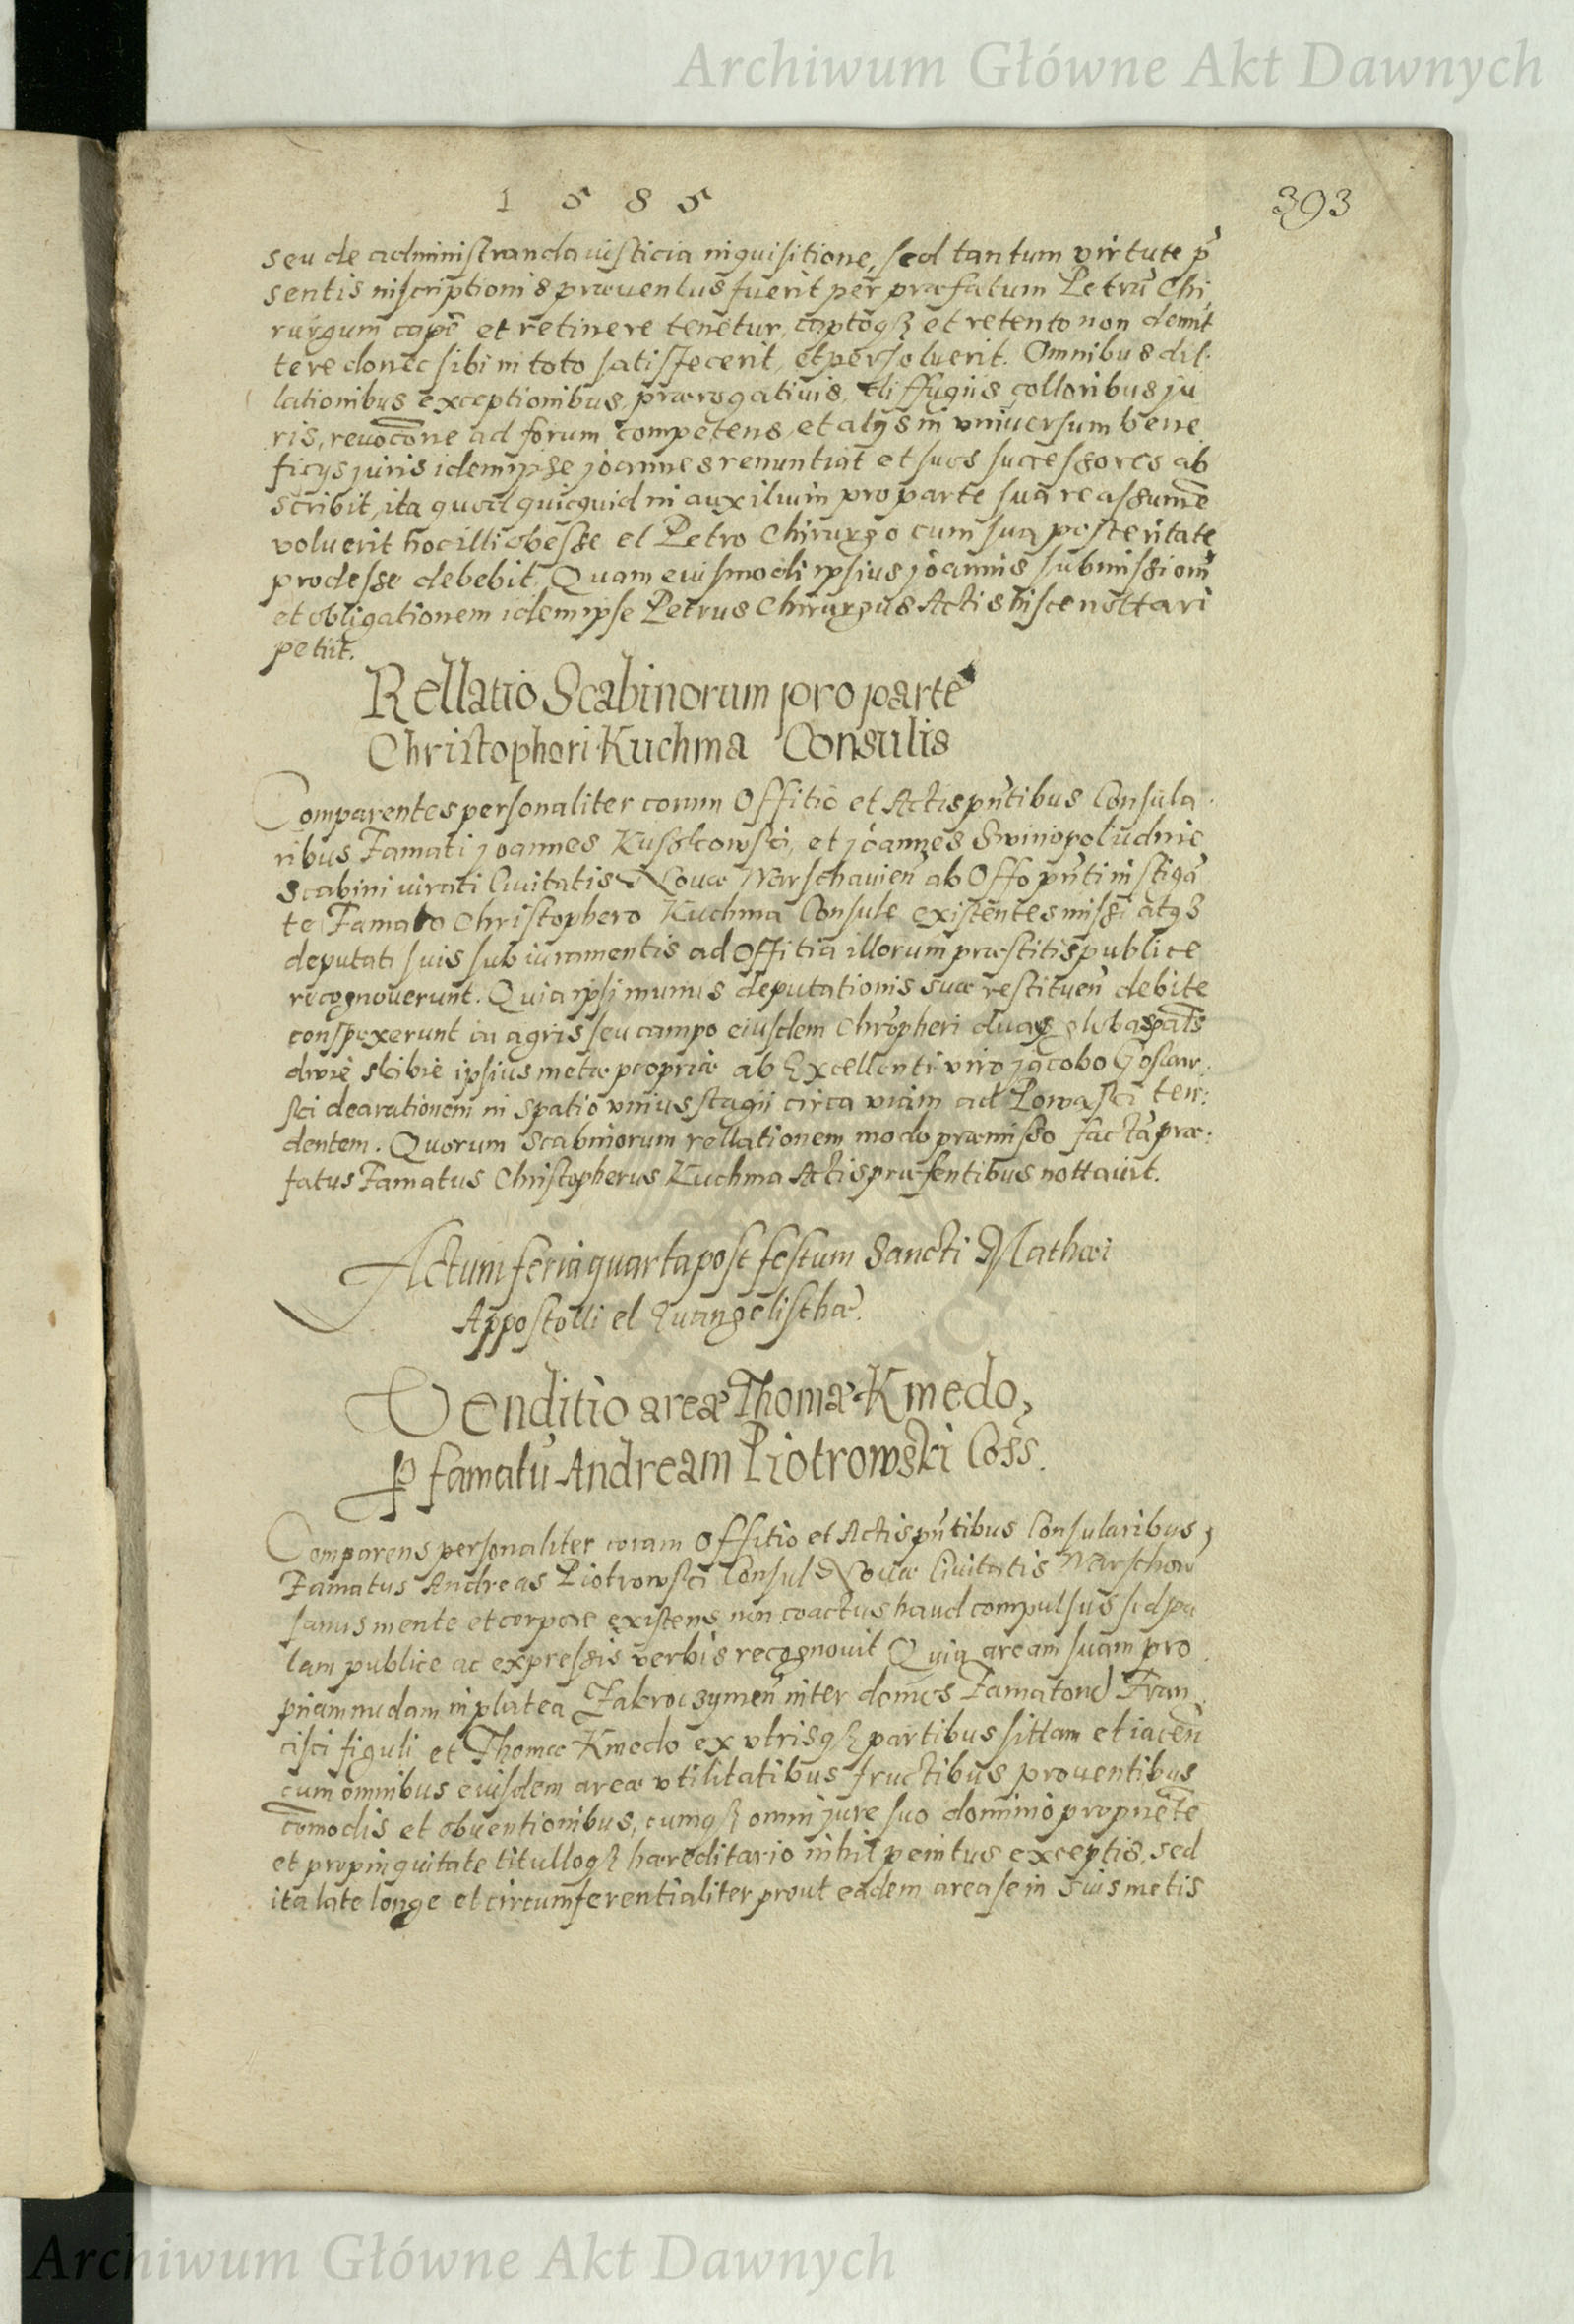 Archiwum Główne Akt Dawnych
1 5 8 5
393
seu de administranda iusticia inquisitione, sed tantum virtute p̃
sentis inscriptionis præuentus fuerit per præfatum Petrũ Chi,
rurgum capẽ et retinere tenetur, captoqȝ et retento non demit
tere donec sibi in toto satisfecerit, et persoluerit. Omnibus dil:
lationibus exceptionibus, prærogatiuis, diffugiis, colloribus ju
ris, reuocõne ad forum competens, et alijs in vniuersum bene
ficijs juris idem ipse joannes renuntiat et suos successores ab
scribit, ita quod quicquid in auxilium pro parte sua reassumẽ
voluerit hoc illi obesse et Petro Chirurgo cum sua posteritate
prodesse debebit. Quam eiusmodi ipsius joannis submissionẽ
et obligationem idem ipse Petrus Chirurgus Actis hisce nottari
petiit.
Rellatio Scabinorum pro parte
Christopheri Kuchma Consulis
Comparentes personaliter coram Offitio et Actis pñtibus Consula
ribus Famati joannes et joannes Swinopoludnie
Scabini iurati Ciuitatis Nouæ Warschauieñ ab Offo pñti instigã
te Famato Christophero Kuchma Consule existentes missi atqȝ
deputati suis sub iuramentis ad Offitia illorum præstitis publice
recognouerunt. Quia ipsi munus deputationis suæ restitueñ debite
conspexerunt in agris seu campo eiusdem Chrõpheri duas
dwie skibie ipsius metæ propriæ ab Excellenti viro jacobo Goslaw
ski dearationem in spatio vnius stagii circa viam ad Powaski ten:
dentem. Quorum Scabinorum rellationem modo præmisso factã præ:
fatus Famatus Christopherus Kuchma Actis præsentibus nottauit.
Actum feria quarta post festum Sancti Mathæi
Appostolli et Euangelisthæ.
Venditio areæ Thomæ Kmedo,
ꝑ famatũ Andream Piotrowski Coss.
Comparens personaliter coram Offitio et Actis pñtibus Consularibus,
Famatus Andreas Piotrowski Consul Nouæ Ciuitatis Warschow
sanus mente et corpore existens, non coactus haud compulsus sed pa
lam publice ac expressis verbis recognouit Quia aream suam pro
priam nudam in platea Zakroczymeñ inter domos Famatorum Fran
cisci figuli et Thomæ Kmedo ex vtrisqȝ partibus sittam et iaceñ
cum omnibus eiusdem areæ vtilitatibus fructibus prouentibus
cõmodis et obuentionibus, cumqȝ omni jure suo dominio proprietẽ
et propinquitate titulloqȝ hæreditario nihil penitus exceptis, sed
ita late longe et circumferentialiter prout eadem area se in suis metis
Archiwum Główne Akt Dawnych